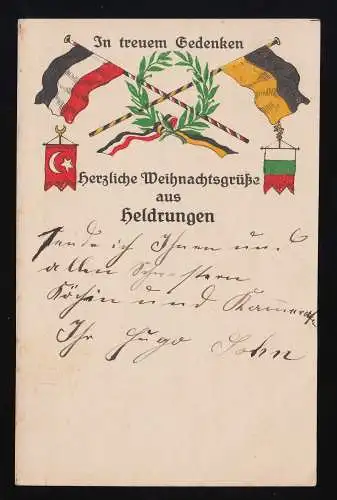 In treuem Gedenken
Herzliche Weihnachtsgrüße
aus
Heldrungen
sende ich Ihnen und
allen Schwestern
Köchin und Kamerad
Ihr Hugo Sohn